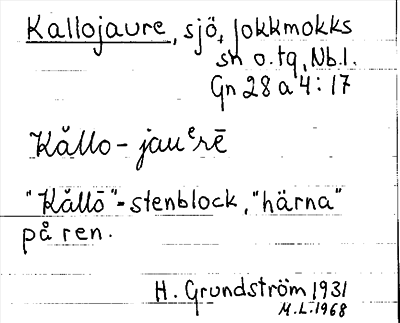 Kallojaure, sjö, Jokkmokks
sn o. tg, Nb.l.
Gn 28 a 4:17
Kållo - jauᵉrē
"Kållō" = stenblock, "härna"
på ren.
H. Grundström 1931
M.L. 1968